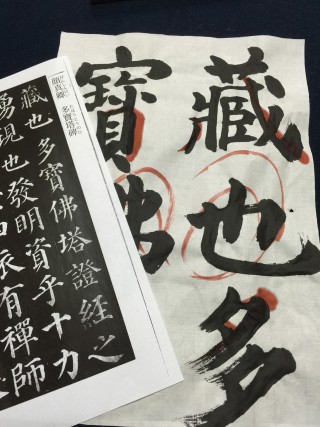 藏也多
寶佛
顔真卿 多寶塔碑
藏也多寶佛塔證經之
現也發明資乎十力
依有禪師